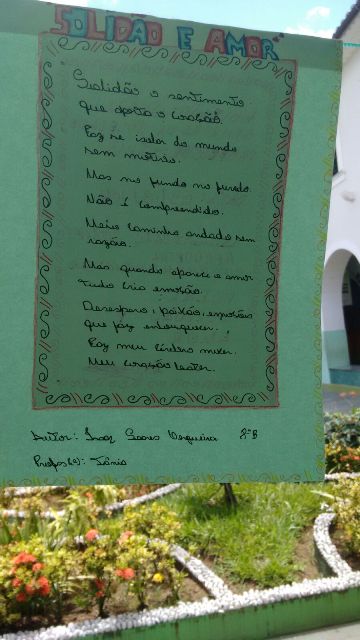 "SOLIDÃO E AMOR"
"Solidão o sentimento
que aperta o coração.
Faz se isolar do mundo
sem motivo.
Mas no fundo no fundo.
Não é compreendido.
Meio caminho andado sem
razão.
Mas quando aparece o amor
tudo cria emoção.
Desespero, paixão,
que faz enlouquecer.
Faz meu cérebro mexer.
Meu coração bater.
Autor: Soares Cerqueira 8ºB
Profes(a): Tânia